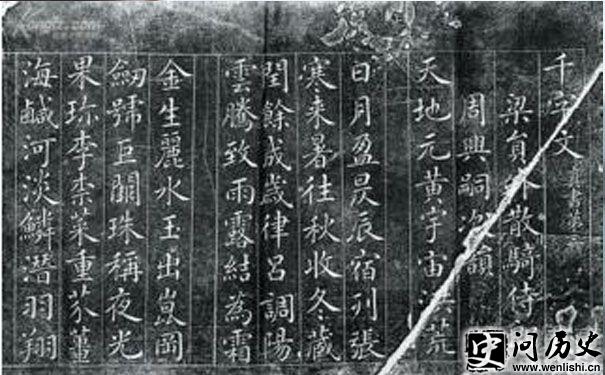 千字文
梁員外散騎侍
周興嗣次韻
天地元黃宇宙洪荒
日月盈昃辰宿列張
寒来暑往秋收冬藏
閏餘成歲律呂調陽
雲騰致雨露結為霜
金生麗水玉出崑岡
劒號巨闕珠稱夜光
果珎李柰菜重芥薑
海鹹河淡鱗潛羽翔
问历史
www.wenlishi.cn